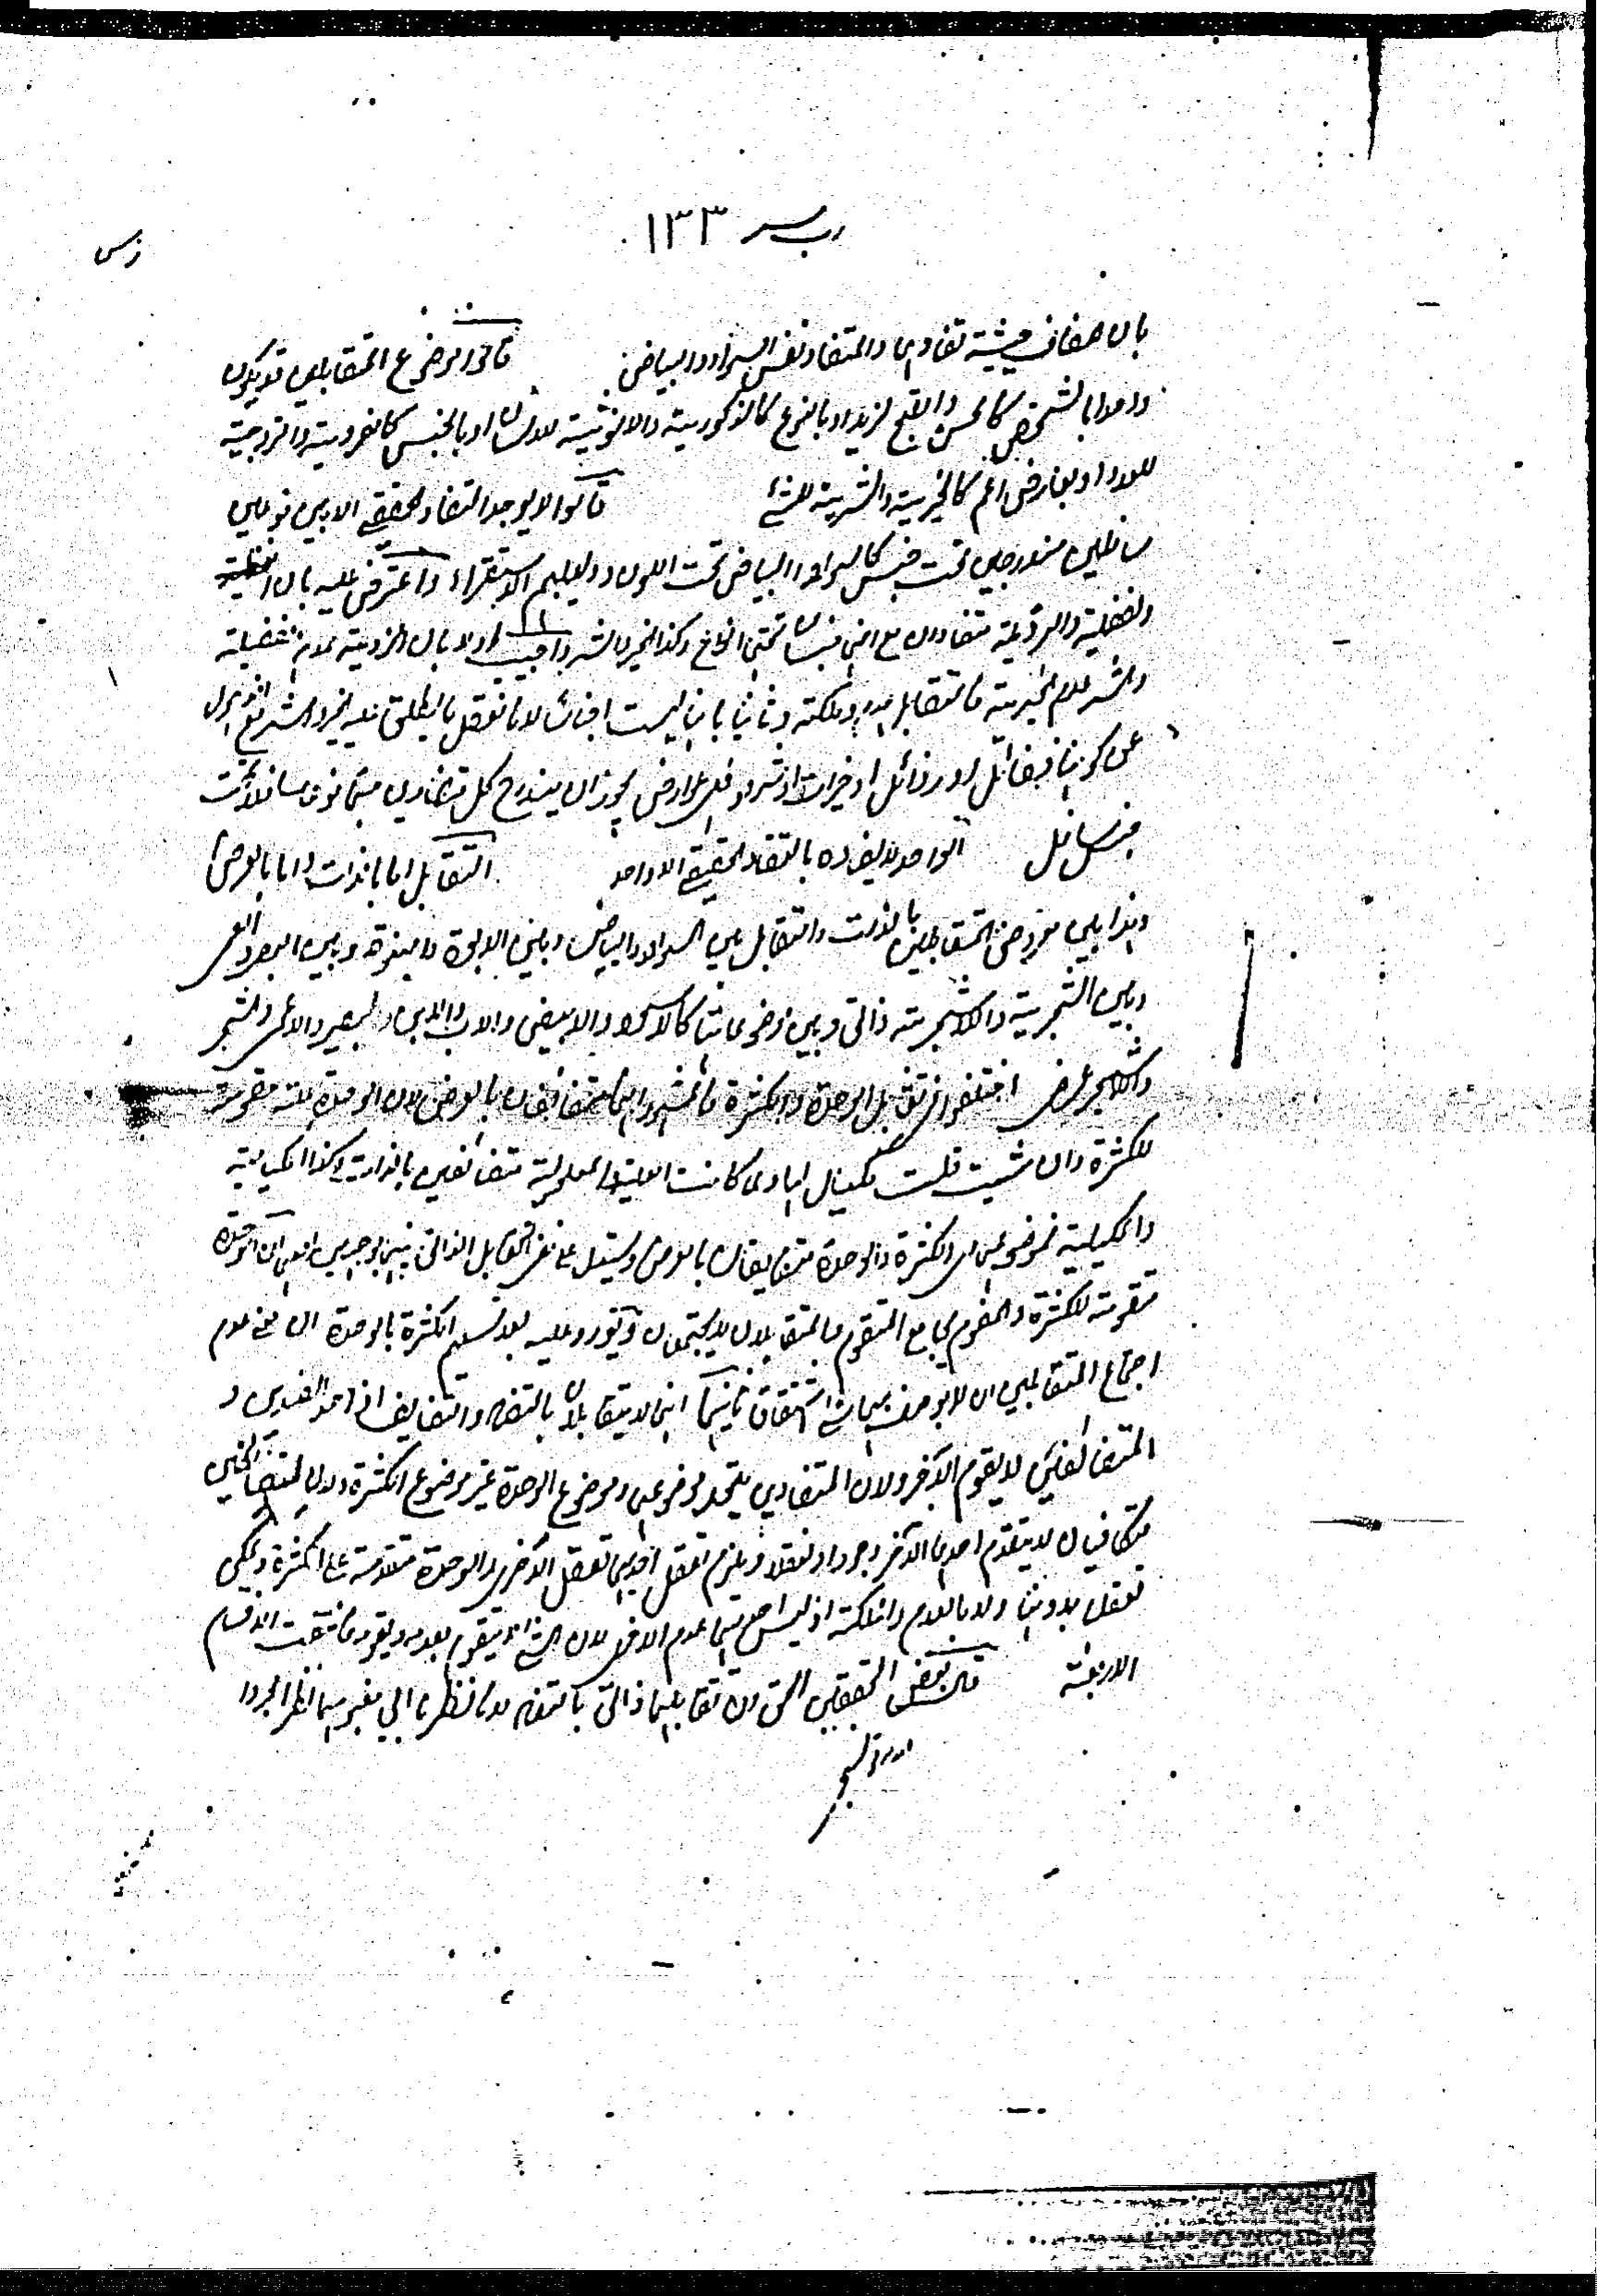 ١٣٣
بان المضاف حيثية تضادهما والمتضاد نفس السواد والبياض قالوا موضوع المتقابلين قد يكون
واحدا بالشخص كالحسن والقبح لزيد او بالنوع كالذكورية والانوثية للانسان او بالجنس كالفردية والزوجية
للعدد او بعارض اعم كالخيرية والشرية للشئ قالوا لا يوجد التضاد الحقيقي الا بين نوعين
سافلين مندرجين تحت جنس كالسواد والبياض تحت اللون ودليلهم الاستقراء واعترض عليه بان
الفضيلة والرذيلة متضادان مع انهما جنسان تحتهما انواع وكذا الخير والشر واجيب اولا بان الرذيلة عدم الفضيلة
والشر عدم الخيرية فالتقابل عدم وملكة وثانيا بانها ليست اجناسا لانا نعقل ما يطلق عليه الخير والشر مع الذهول
عن كونها فضائل او رذائل او خيرات او شرور فهي عوارض يجوز ان يندرج كل متضادين منها نوعا سافلا تحت
جنس سافل الواحد لا يضاده بالتضاد الحقيقي الا واحد التقابل اما بالذات واما بالعرض
وهذا بين معروضي المتقابلين بالذات والتقابل بين السواد والبياض وبين الابوة والبنوة وبين البصر والعمى
وبين الشجرية واللاشجرية ذاتي وبين موضوعاتها كالاسود والابيض والاب والابن والبصير والاعمى والشجر
واللاشجر عرضي اختلفوا في تقابل الوحدة والكثرة فالمشهور انهما متضايفان بالعرض لان الوحدة علة مقومة
للكثرة وان شئت قلت مكيال لها ولما كانت العلية والمعلولية متضائفين بالذات وكذا المكيالية
والمكيلية فموضوعهما من الكثرة والوحدة متضايفان بالعرض ويستدل على نفي التقابل الذاتي بينهما بوجهين احدهما ان الوحدة
مقومة للكثرة والمقوم يجامع المتقوم والمتقابلان لا يجتمعان وتورد عليه بعد تسليم الكثرة بالوحدة ان معنى عدم
اجتماع المتقابلين ان لا يوصف بهما شئ اشتقاقا ثانيهما انهما لا يتقابلان بالتضاد والتضايف اذ احد الضدين و
المتضائفين لا يقوم الآخر ولان المتضادين يتحد موضوعهما وموضوع الوحدة غير موضوع الكثرة ولان المتضائفين
متكافيان لا يتقدم احدهما الآخر وجودا وتعقلا ويلزم تعقل احدهما تعقل الآخر والوحدة متقدمة على الكثرة ويمكن
تعقل بدونها ولا بالعدم والملكة اذ ليس احدهما عدم الآخر لان الشئ لا يتقوم بعدمه فانتفت الاقسام
الاربعة قال بعض المحققين الحق ان تقابلهما ذاتي بالتضاد لانا نظرنا الى مفهوميهما